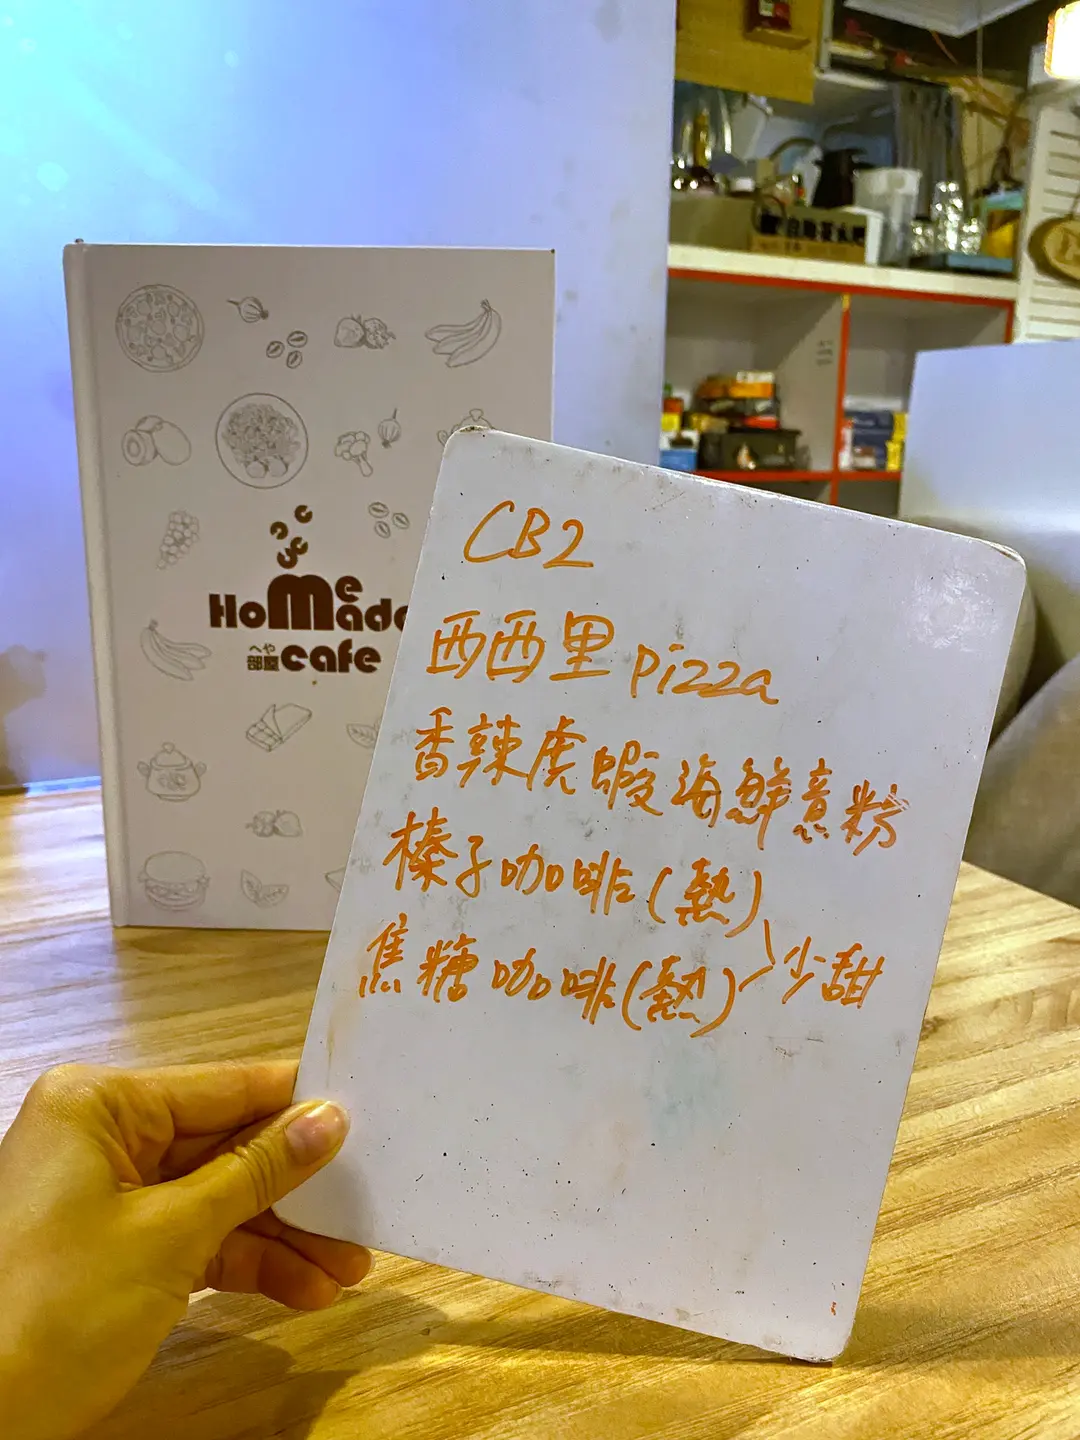 HoMe Made
へや
部屋 cafe
CB2
西西里 pizza
香辣虎蝦海鮮意粉
榛子咖啡(熱)
焦糖咖啡(熱) 少甜